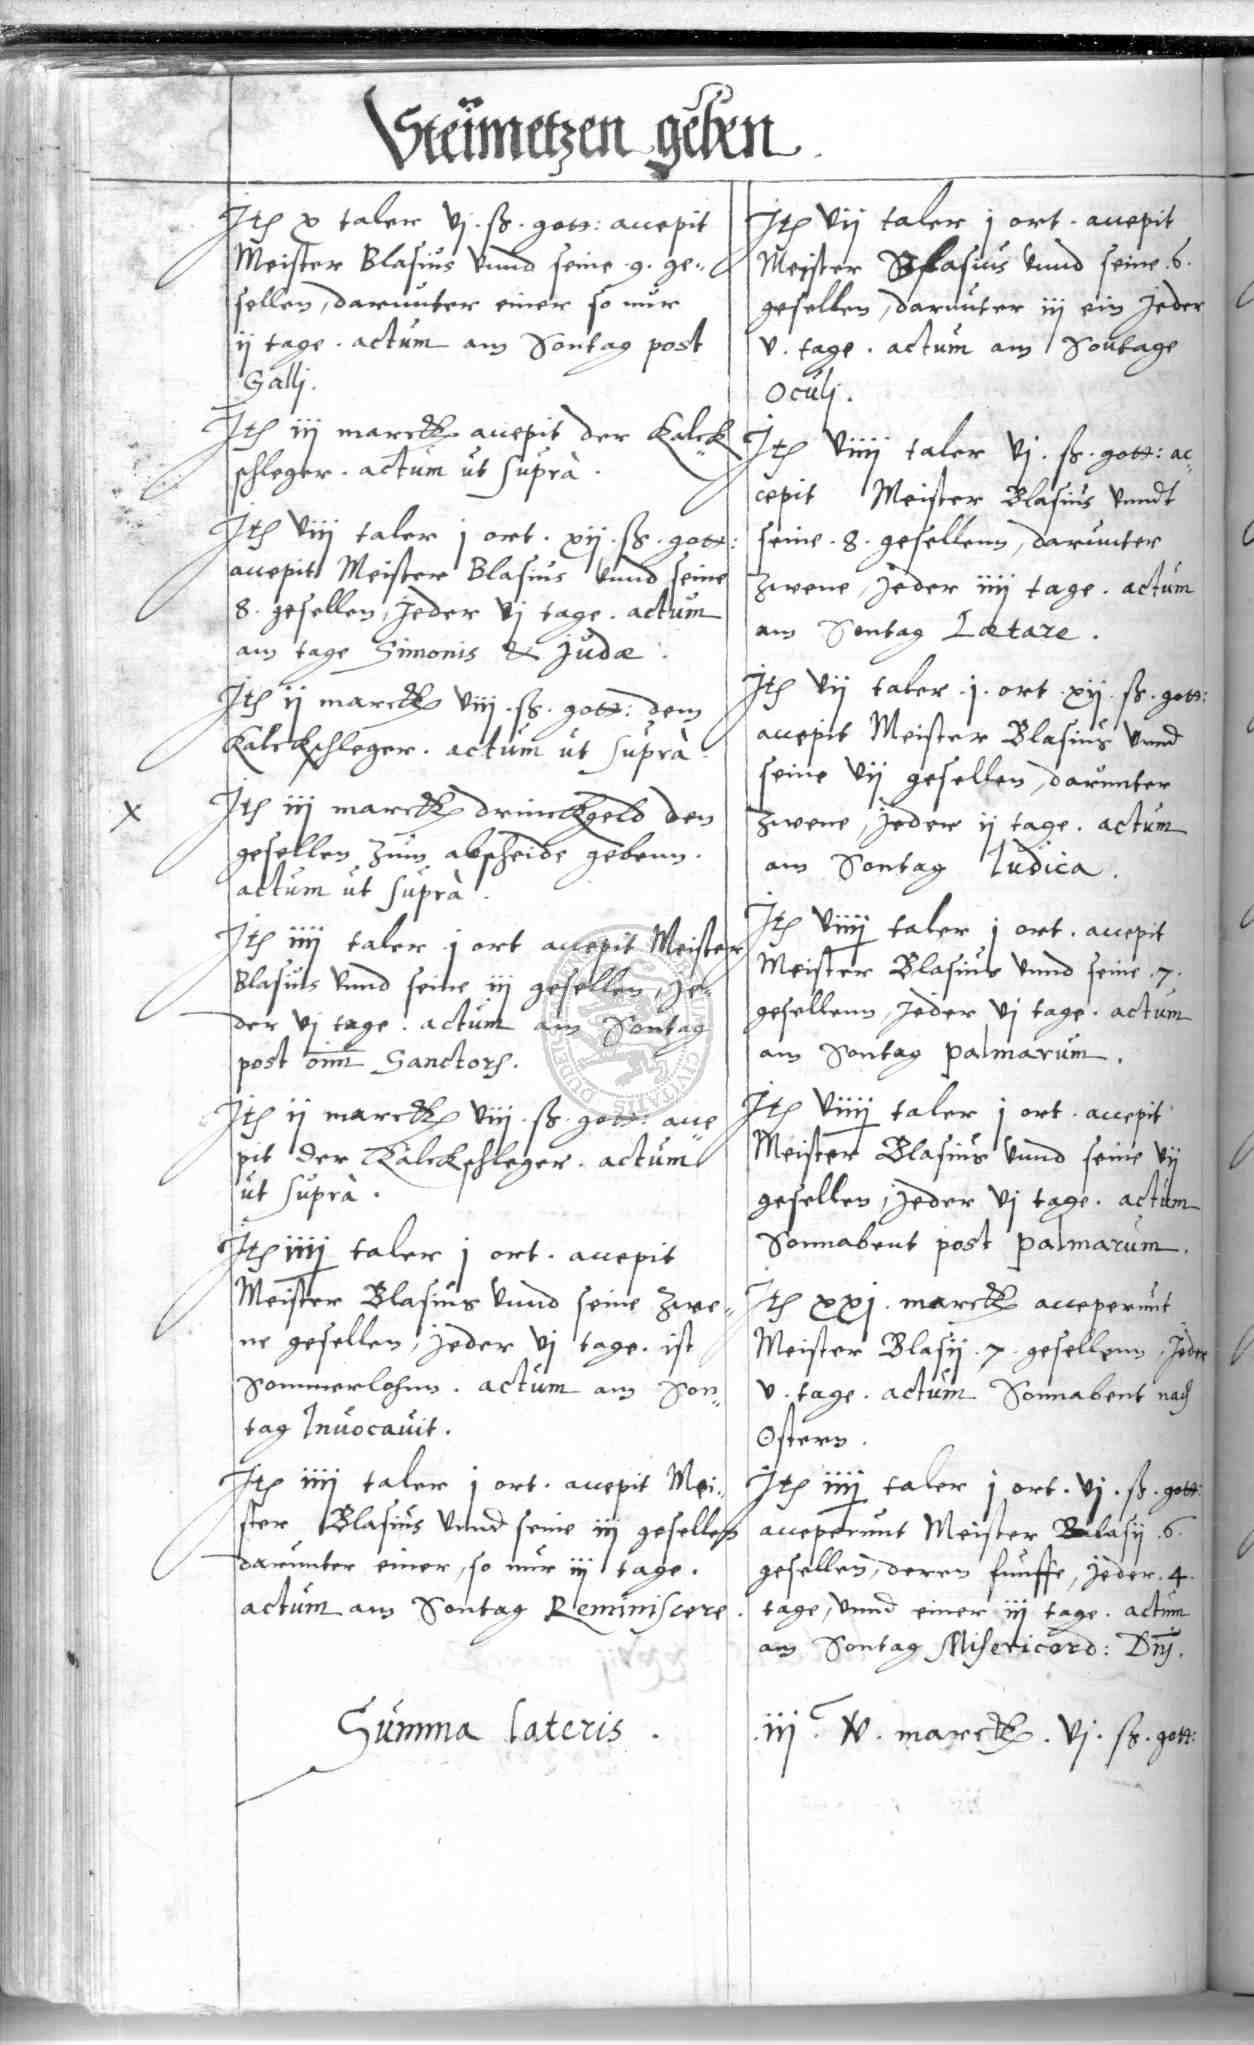 Steinmetzen geben
Jtem x taler vj. ß. gott: accepit
Meister Blasius vnnd seine .9. ge„
sellen, darunter einer so nur
ij tage. actum am Sontag post
Galli.
Jtem iij marck accepit der Kalck„
schleger. actum ut suprà.
Jtem viij taler j ort. xij. ß. gott:
accepit Meister Blasius vnnd seine
8. gesellen, jeder vj tage. actum
am tage Simonis & Judæ.
Jtem ij marck viij. ß. gott: dem
Kalckschleger. actum ut suprà.
x Jtem iij marck drinckgeld den
gesellen zum abscheide gebenn.
actum ut suprà.
Jtem iiij taler j ort accepit Meister
Blasius vnnd seine iij gesellen, je„
der vj tage. actum am Sontag
post oim Sanctorum.
Jtem ij marck viij. ß. gott: acce„
pit der Kalckschleger. actum
ut suprà.
Jtem iiij taler j ort. accepit
Meister Blasius vnnd seine zwe„
ne gesellen, jeder vj tage. ist
Sommerlohnn. actum am Son„
tag Inuocauit.
Jtem iiij taler j ort. accepit Mei„
ster Blasius vnnd seine iij gesellen
darunter einer, so nur iij tage.
actum am Sontag Reminiscere.
Jtem vij taler j ort. accepit
Meister Blasius vnnd seine .6.
gesellen, darunter iij ein jeder
v. tage. actum am Sontage
Oculj.
Jtem viiij taler vj. ß. gott: ac„
cepit Meister Blasius vnndt
seine .8. gesellenn, darunter
zwene, jeder iiij tage. actum
am Sontag Lætare.
Jtem vij taler .j. ort .xij. ß. gott:
accepit Meister Blasius vnnd
seine vij gesellen, darunter
zwene, jeder ij tage. actum
am Sontag Iudica.
Jtem viiij taler j ort. accepit
Meister Blasius vnnd seine .7.
gesellenn, jeder vj tage. actum
am Sontag palmarum.
Jtem viiij taler j ort. accepit
Meister Blasius vnnd seine vij
gesellen, jeder vj tage. actum
Sonnabent post palmarum.
Jtem xxj. marck acceperunt
Meister Blasij .7. gesellenn, jeder
v. tage. actum Sonnabent nach
Ostern.
Jtem iiij taler j ort. vj. ß. gott:
acceperunt Meister Blasij .6.
gesellen, deren funffe, jeder .4.
tage, vnnd einer iij tage. actum
am Sontag Misericord: Dnj.
Summa lateris. .iij C v. marck. vj. ß. gott: